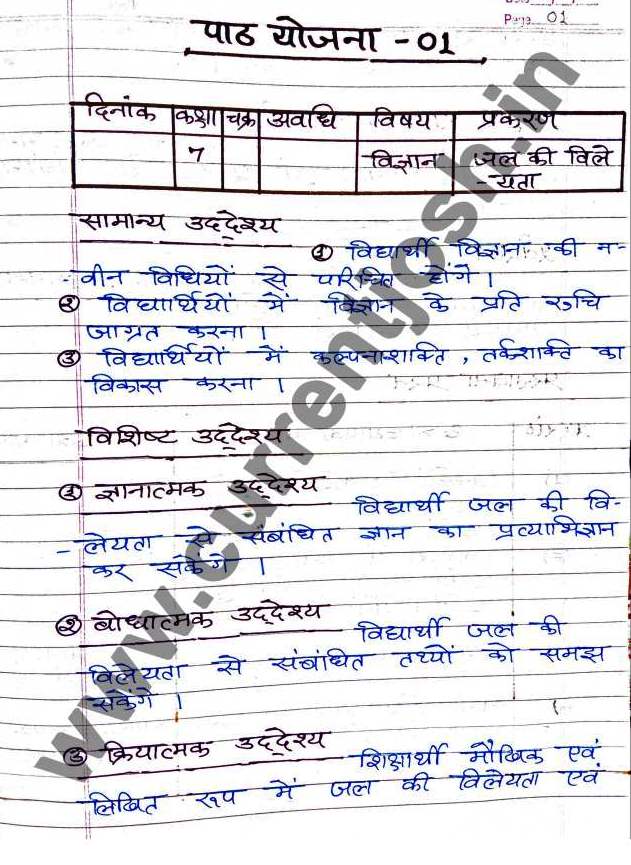 Page 01
पाठ योजना - 01
दिनांक कक्षा चक्र अवधि विषय प्रकरण
7 विज्ञान जल की विले
- यता
सामान्य उद्देश्य
① विद्यार्थी विज्ञान की न-
- वीन विधियों से परिचित होंगे ।
② विद्यार्थियों में विज्ञान के प्रति रुचि
जाग्रत करना ।
③ विद्यार्थियों में कल्पनाशक्ति , तर्कशक्ति का
विकास करना ।
विशिष्ट उद्देश्य
① ज्ञानात्मक उद्देश्य
विद्यार्थी जल की वि-
- लेयता से संबंधित ज्ञान का प्रत्याभिज्ञान
कर सकेंगे ।
② बोधात्मक उद्देश्य
विद्यार्थी जल की
विलेयता से संबंधित तथ्यों को समझ
सकेंगे ।
③ क्रियात्मक उद्देश्य
शिक्षार्थी मौखिक एवं
लिखित रूप में जल की विलेयता एवं
www.currentjosh.in